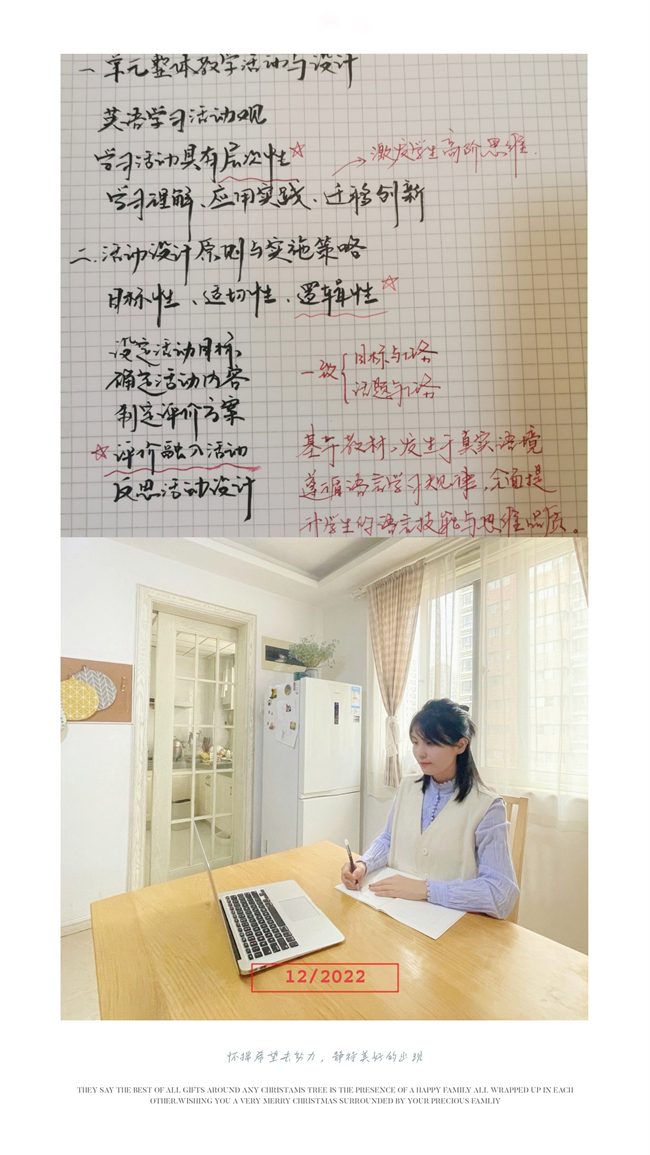 一 单元整体教学活动与设计
英语学习活动观
学习活动具有层次性☆
→激发学生高阶思维.
学习理解、应用实践、迁移创新
二.活动设计原则与实施策略
目标性、适切性、逻辑性☆
设定活动目标
确定活动内容
制定评价方案
☆评价融入活动
反思活动设计
一致{目标与任务
话题与任务
基于教材,发生于真实语境
遵循语言学习规律,全面提
升学生的语言技能与思维品质。
12/2022
怀揣希望去努力,静待美好的出现
THEY SAY THE BEST OF ALL GIFTS AROUND ANY CHRISTAMS TREE IS THE PRESENCE OF A HAPPY FAMILY ALL WRAPPED UP IN EACH
OTHER.WISHING YOU A VERY MERRY CHRISTMAS SURROUNDED BY YOUR PRECIOUS FAMLIY